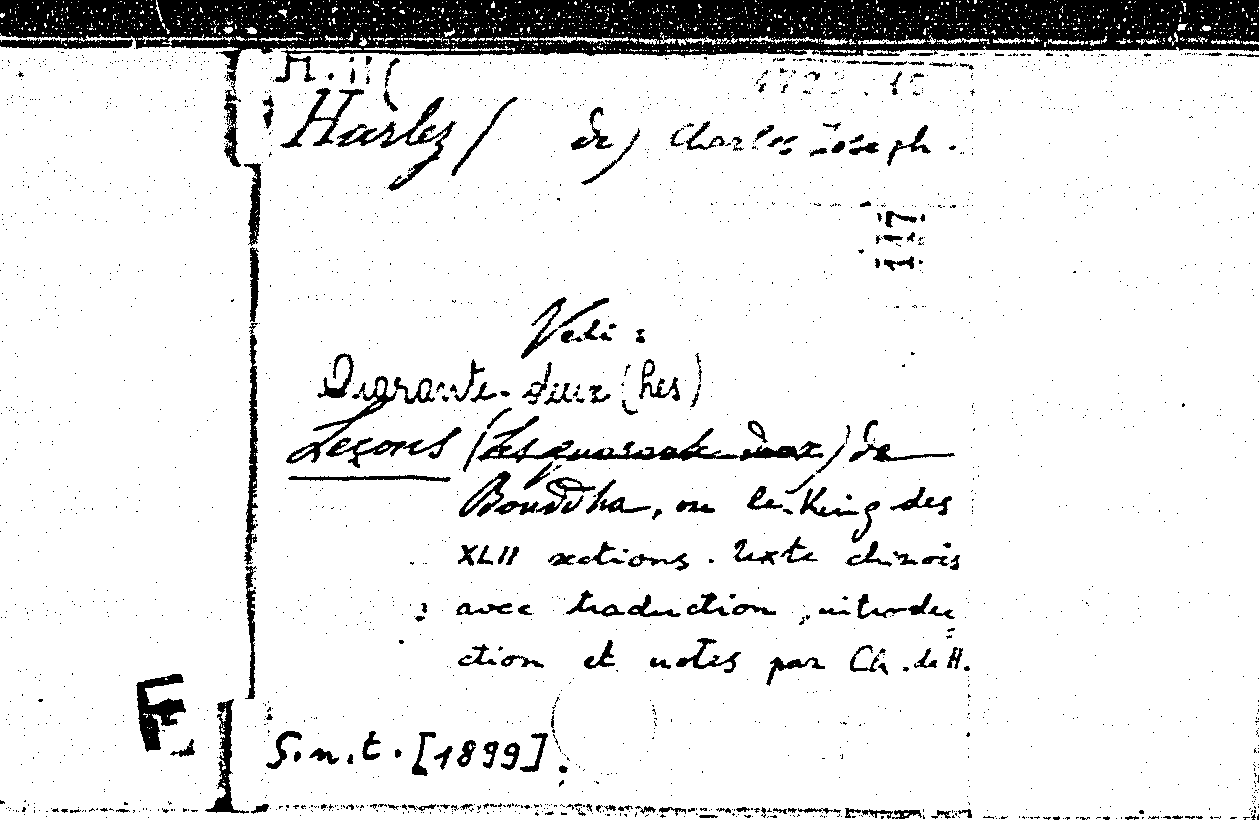 H. II (
4793.16
Harlez / de) Charles Joseph.
117
Vedi:
Quarante-deux (Les)
Leçons (Les quarante-deux) de
Bouddha, ou le King des
XLII sections. Texte chinois
avec traduction, introdu=
ction et notes par Ch. de H.
S.n.t. [1899].